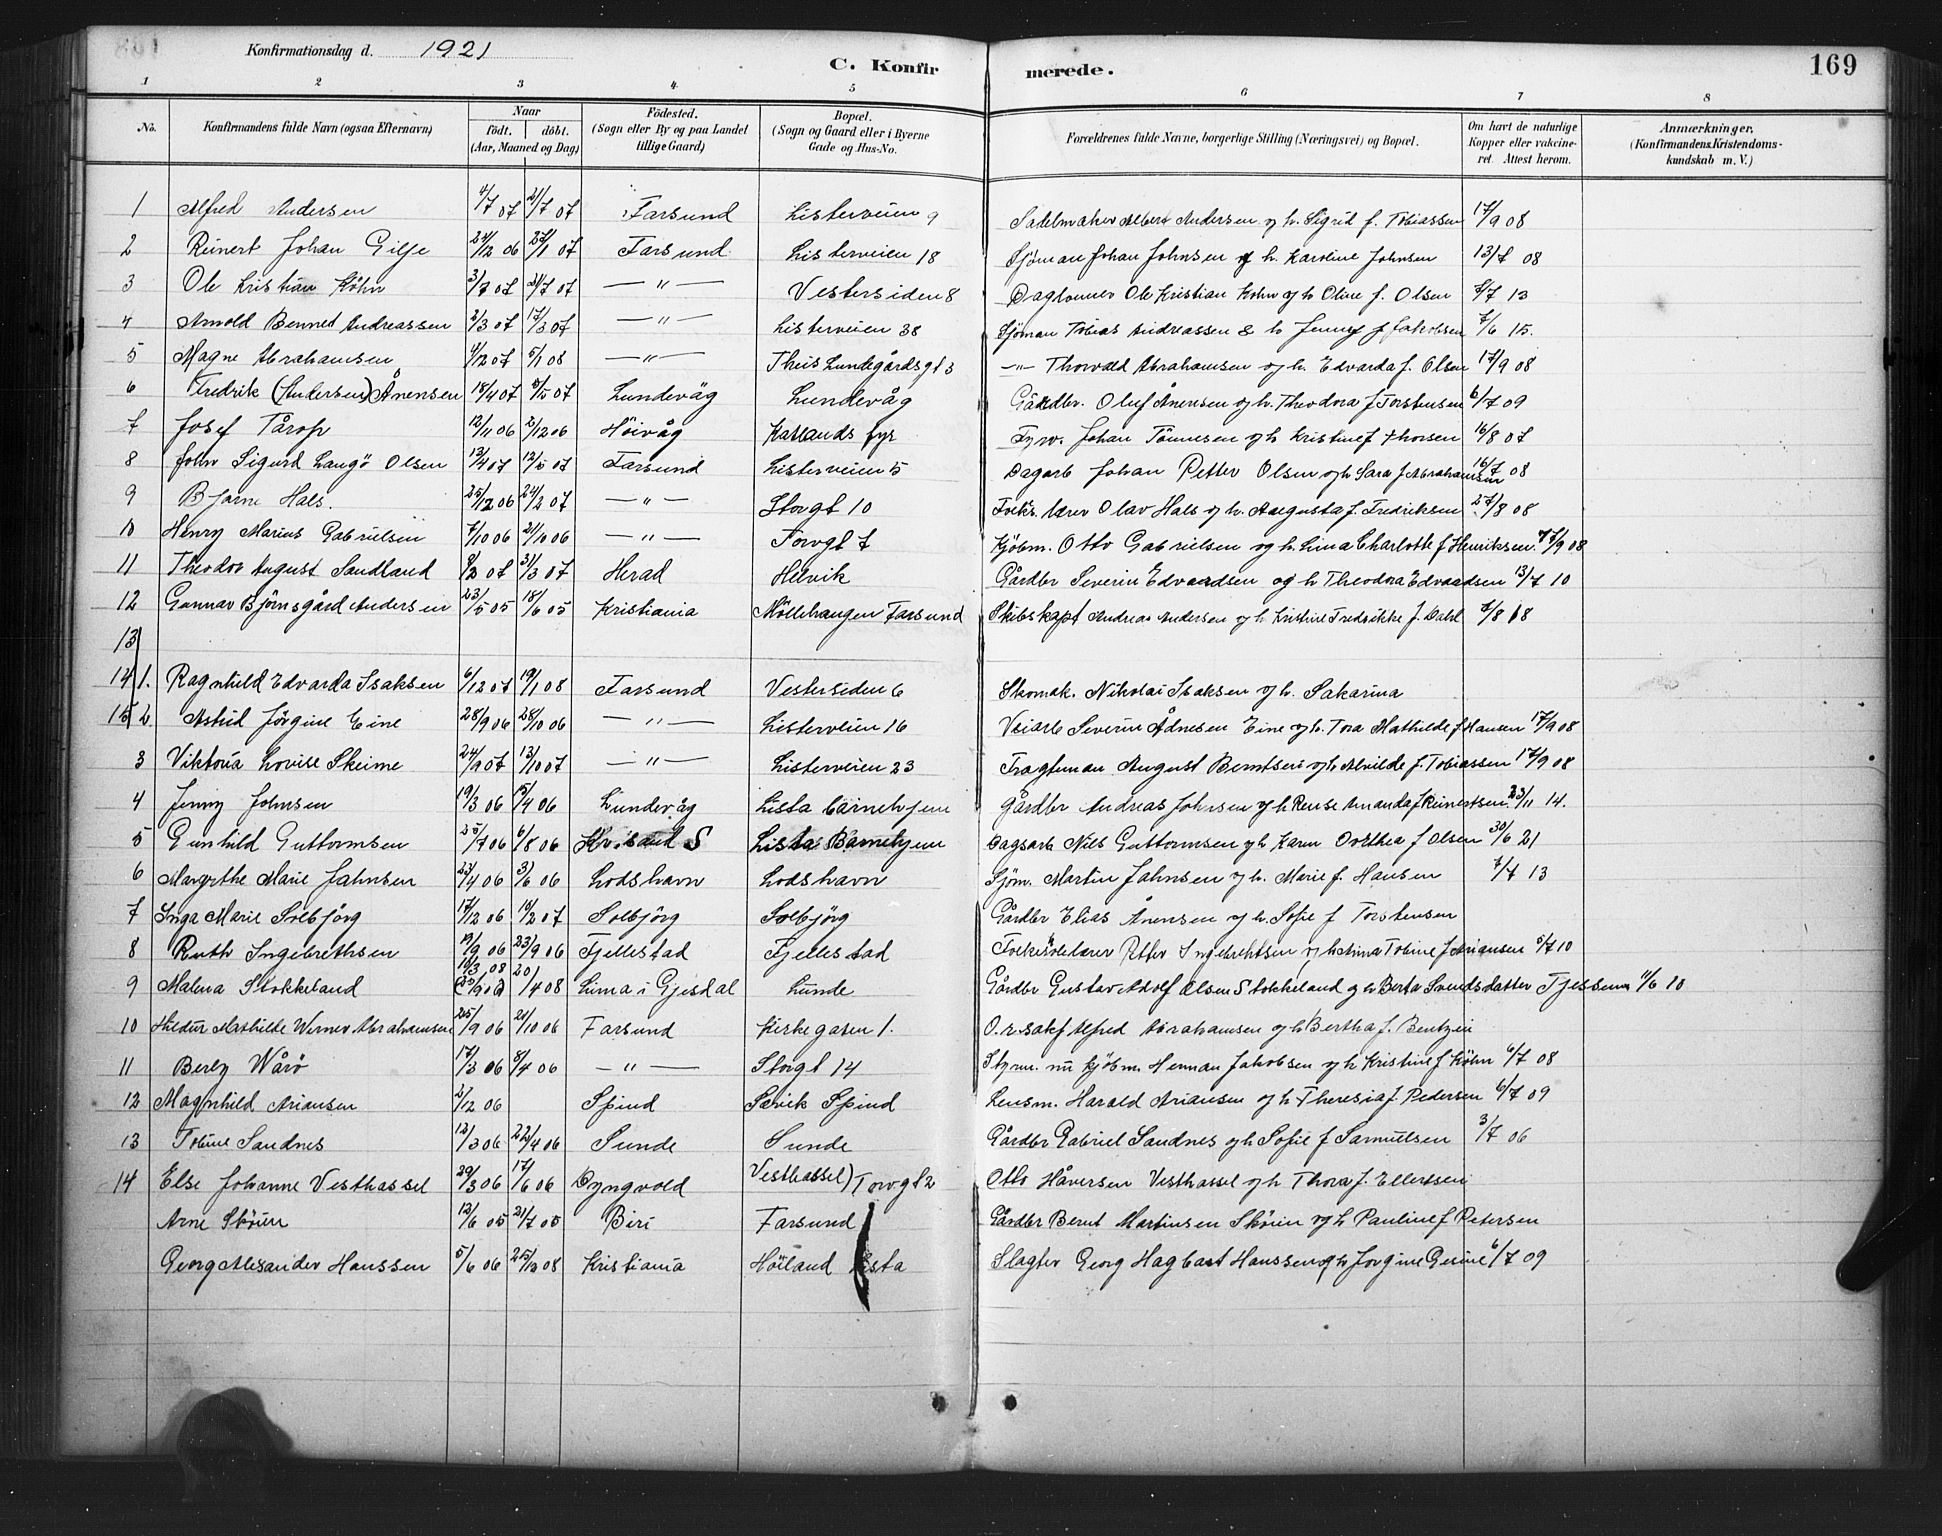 Konfirmationsdag d. 1921
C. Konfirmerede.
169
1 2 3 4 5 6 7 8
No. Konfirmandens fulde Navn (ogsaa Efternavn) Naar født. døbt. (Aar, Maaned og Dag) Fødested. (Sogn eller By og paa Landet tillige Gaard) Bopæl. (Sogn og Gaard eller i Byerne Gade og Hus-No. Forældrenes fulde Navne, borgerlige Stilling (Næringsvei) og Bopæl. Om havt de naturlige Kopper eller vakcineret. Attest herom. Anmærkninger, (Konfirmandens Kristendomskundskab m. V.)
1 Alfred Andersen 4/7 07 21/7 07 Farsund Listerveien 9 Sadelmaker Albert Andersen og h. Sigrid f. Tobiassen 17/9 08
2 Reinert Johan Gilje 24/12 06 27/1 07 Farsund Listerveien 18 Sjöman Johan Johnsen og h. Karoline Johnsen 13/7 08
3 Ole Kristian Köhn 3/7 07 21/7 07 — " — Vestersiden 8 Daglönner Ole Kristian Köhn og h Oline f. Olsen 8/7 13
4 Arnold Bennet Andreassen 2/3 07 17/3 07 — " — Listerveien 38 Sjöman Tobias Andreassen & h Jenny f Jakobsen 7/6 15.
5 Magne Abrahamsen 4/12 07 5/1 08 — " — Theis Lundegårdsgt 3 — " — Thorvald Abrahamsen og h. Edvarda f. Olsen 17/9 08
6 Fredrik (Andersen) Ånensen 18/4 07 9/5 07 Lundevåg Lundevåg Gårdbr. Oluf Ånensen og h. Theodora f Torstensen 6/7 09
7 Josef Tårop 12/11 06 2/12 06 Höivåg Katlands fyr Fyrv. Johan Tönnesen og h Kristine f Thorsen 16/8 07
8 John Sigurd Langö Olsen 13/4 07 12/5 07 Farsund Listerveien 5 Dagarb Johan Petter Olsen og h Sara f Abrahamsen 16/7 08
9 Bjarne Hals. 25/12 06 24/2 07 — " — Storgt 10 Folks. lærer Olav Hals og h. Augusta f. Fredriksen 27/8 08
10 Henry Marius Gabrielsen 7/10 06 21/10 06 — " — Torvgt 7 Kjöbm. Otto Gabrielsen og h. Lina Charlotte f Henriksen 17/9 08
11 Theodor August Sandland 9/2 07 31/3 07 Herad Helvik Gårdbr Severin Edvardsen og h Theodora Edvardsen 13/7 10
12 Gunnar Björnsgård Andersen 23/5 05 18/6 05 Kristiania Möllehaugen Farsund Skibskapt Andreas Andersen og h Kristine Fredrikke f. Dahl 7/8 18
13
14 1. Ragnhild Edvarda Isaksen 6/12 07 19/1 08 Farsund Vestersiden 6 Skomak. Nikolai Isaksen og h. Sakarina
15 2 Astrid Jörgine Eine 28/9 06 28/10 06 — " — Listerveien 16 Veiarb Severin Ådnesen Eine og h. Tora Mathilde f. Hansen 17/9 08
3 Viktoria Lovise Skeime 24/9 07 13/10 07 — " — Listerveien 23 Fragtman August Berntsen og h Alvilde f. Tobiassen 17/9 08
4 Jenny Johnsen 19/3 06 15/4 06 Lundevåg Lista barnehjem Gårdbr Andreas Johnsen og h Rense Amanda f Reinertsen 23/11 14.
5 Gunhild Guttormsen 25/7 06 6/8 06 Kristiand S Lista Barnehjem Dagsarb Nils Guttormsen og h Karen Dorthea f Olsen 30/6 21
6 Margrthe Marie Jahnsen 23/4 06 3/6 06 Lodshavn Lodshavn Sjöm. Martin Jahnsen og h. Marie f. Hansen 7/7 13
7 Inga Marie Solbjörg 17/12 06 10/2 07 Solbjörg Solbjörg Gårdbr Elias Ånensen og h. Sofie f Torstensen
8 Ruth Ingebrethsen 19/9 06 23/9 06 Fjellestad Fjellestad Folkeskolelærer Petter Ingebrethsen og h Anna Tobine f Ariansen 5/7 10
9 Malena Stokkeland 10/3 08 20/4 08 Lima i Gjesdal Lunde Gårdbr Gustav Adolf Olsen Stokkeland og h Berta Svendsdatter Fjessem 11/6 10
10 Hildur Mathilde Werner Abrahamsen 25/9 06 21/10 06 Farsund Kirkegaten 1. O.r.sakf Alfred Abrahamsen og h Bertha f. Bentzen
11 Berly Wårö 17/3 06 8/4 06 — " — Storgt 14 Styrm. nu kjöbm. Herman Jakobsen og h Kristine f Köhn 6/7 08
12 Magnhild Ariansen 2/12 06 Spind Sævik Spind Lensm. Harald Ariansen og h Theresia f Pedersen 6/7 09
13 Tobine Sandnes 12/3 06 22/4 06 Sunde Sunde Gårdbr Gabriel Sandnes og h Sofie f Samuelsen 3/7 06
14 Else Johanne Vesthassel 29/3 06 17/6 06 Dyngvold Vesthassel) Torvgt 2 Otto Håversen Vesthassel og h Thora f. Ellertsen
Arne Skörin 12/6 05 21/7 05 Biri Farsund Gårdbr Bernt Martinsen Skörin og h Pauline f Petersen
Georg Alexander Hanssen 5/6 06 25/12 08 Kristiania Höiland Lista Slagter Georg Hagbart Hanssen og h Jorgine Gurine 6/7 09